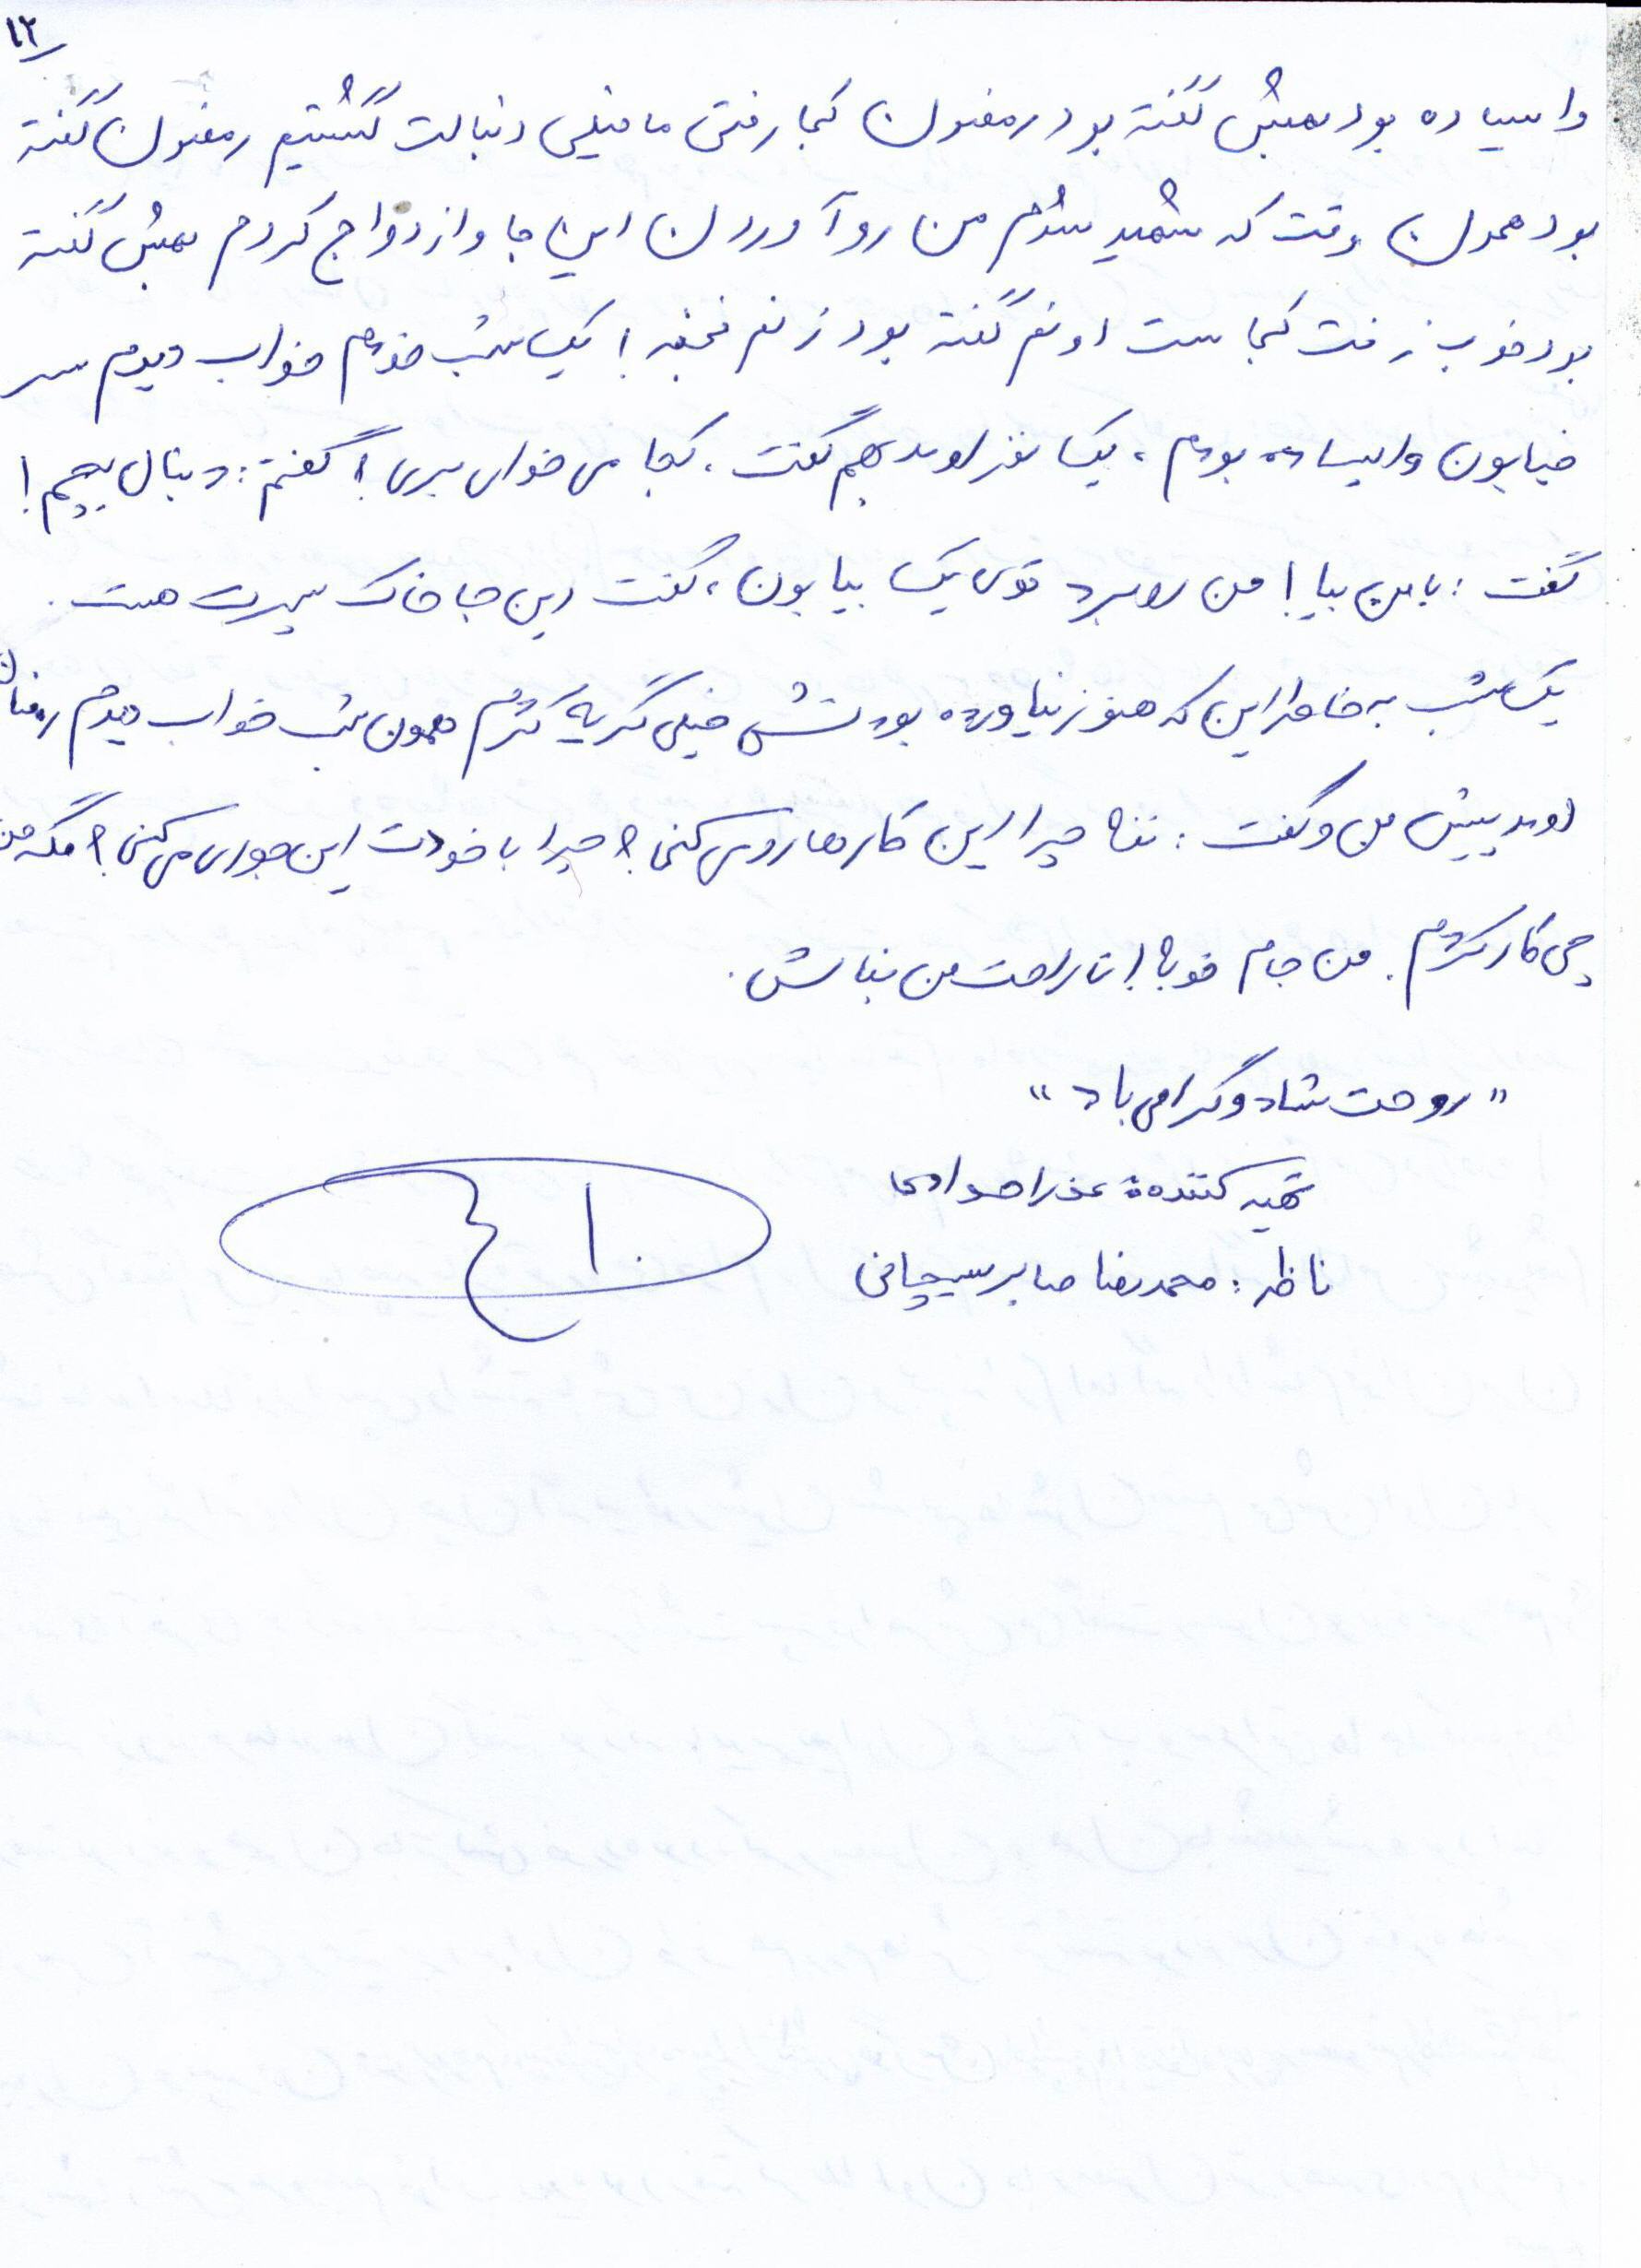 ۱۲
وایساده بود بهش گفته بود رمضون کجا رفتی ما خیلی دنبالت گشتیم رمضون گفته
بود همون وقت که شهید شدم من رو آوردن این جا و ازدواج کردم بهش گفته
بود خوب زنت کجاست اونم گفته بود زنم نجفه! یک شب خودم خواب دیدم سر
خیابون وایساده بودم، یک نفر اومد بهم گفت، کجا می خوای بری؟ گفتم: دنبال بچم!
گفت: با من بیا! من رو برد توی یک بیابون، گفت این جا خاک پسرت هست.
یک شب به خاطر این که هنوز نیاورده بودنش خیلی گریه کردم همون شب خواب دیدم رمضان
اومد پیش من و گفت: ننه چرا این کارها رو می کنی؟ چرا با خودت این جوری می کنی؟ مگه من
چی کار کردم. من جام خوبه! ناراحت من نباش.
"روحت شاد و گرامی باد"
تهیه کننده: عذرا
ناظر: محمدرضا صابر سیچانی